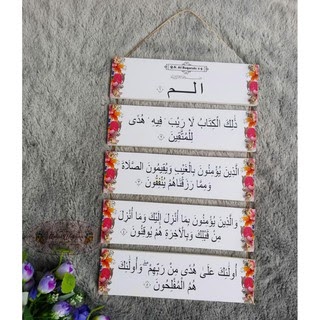 Q.S. Al Baqarah 1-5
الــم
ذٰلِكَ الْكِتَابُ لَا رَيْبَ فِيهِ هُدًى
لِلْمُتَّقِينَ
الَّذِينَ يُؤْمِنُونَ بِالْغَيْبِ وَيُقِيمُونَ الصَّلَاةَ
وَمِمَّا رَزَقْنَاهُمْ يُنْفِقُونَ
وَالَّذِينَ يُؤْمِنُونَ بِمَا أُنْزِلَ إِلَيْكَ وَمَا أُنْزِلَ
مِنْ قَبْلِكَ وَبِالْآخِرَةِ هُمْ يُوقِنُونَ
أُولَٰئِكَ عَلَىٰ هُدًى مِنْ رَبِّهِمْ ۖ وَأُولَٰئِكَ
هُمُ الْمُفْلِحُونَ